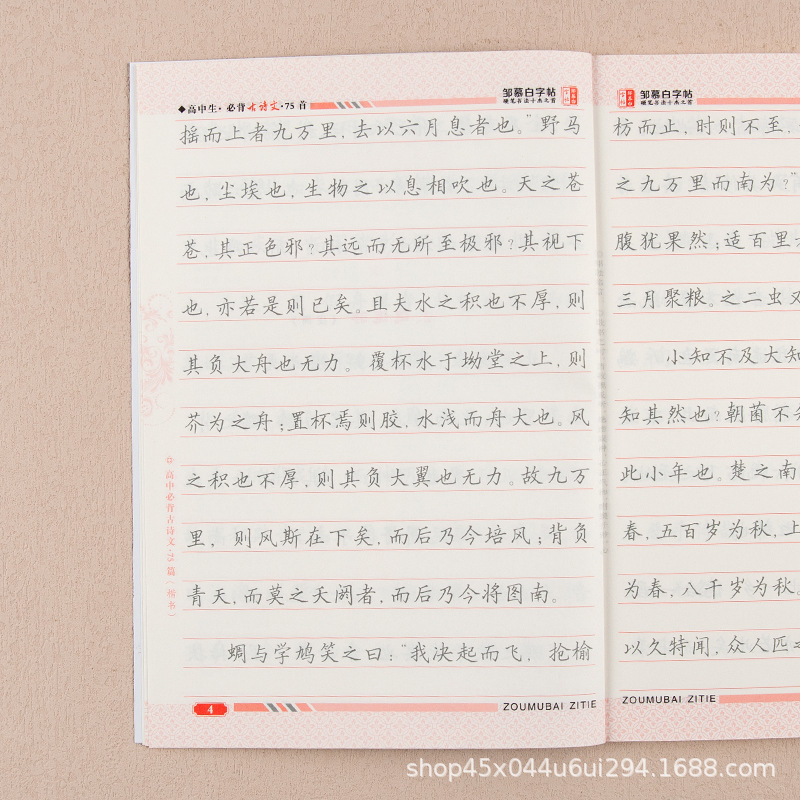 ◆高中生·必背古诗文·75首
邹慕白字帖
硬笔书法十杰之首
摇而上者九万里，去以六月息者也。”野马
也，尘埃也，生物之以息相吹也。天之苍
苍，其正色邪？其远而无所至极邪？其视下
也，亦若是则已矣。且夫水之积也不厚，则
其负大舟也无力。覆杯水于坳堂之上，则
芥为之舟；置杯焉则胶，水浅而舟大也。风
之积也不厚，则其负大翼也无力。故九万
里，则风斯在下矣，而后乃今培风；背负
青天，而莫之夭阏者，而后乃今将图南。
蜩与学鸠笑之曰：“我决起而飞，抢榆
高中必背古诗文·75篇（楷书）
4
ZOUMUBAI ZITIE
邹慕白字帖
硬笔书法十杰之首
枋而止，时则不至，
之九万里而南为？”
腹犹果然；适百里
三月聚粮。之二虫又
小知不及大知
知其然也？朝菌不知
此小年也。楚之南
春，五百岁为秋，上
为春，八千岁为秋。
以久特闻，众人匹之
ZOUMUBAI ZITIE
shop45x044u6ui294.1688.com